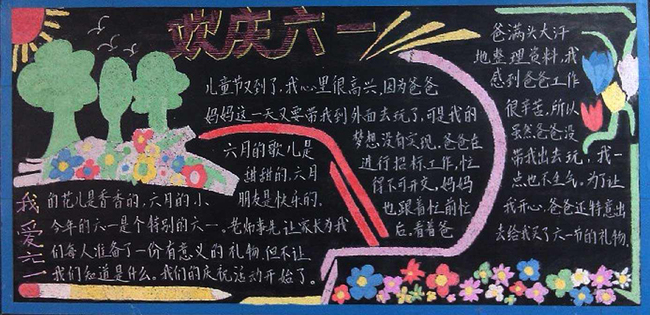 欢庆六一
儿童节又到了，我心里很高兴，因为爸爸
妈妈这一天又要带我到外面去玩了，可是我的
梦想没有实现，爸爸在
进行招标工作，忙
得不可开交，妈妈
也跟着忙前忙
后。看着爸
爸满头大汗
地整理资料，我
感到爸爸工作
很辛苦，所以
虽然爸爸没
带我出去玩，我一
点也不生气。为了让
我开心，爸爸还特意出
去给我买了六一节的礼物。
我爱六一
六月的歌儿是
甜甜的，六月
的花儿是香香的，六月的小
朋友是快乐的。
今年的六一是个特别的六一。老师事先让家长为我
们每人准备了一份有意义的礼物，但不让
我们知道是什么。我们的庆祝活动开始了。